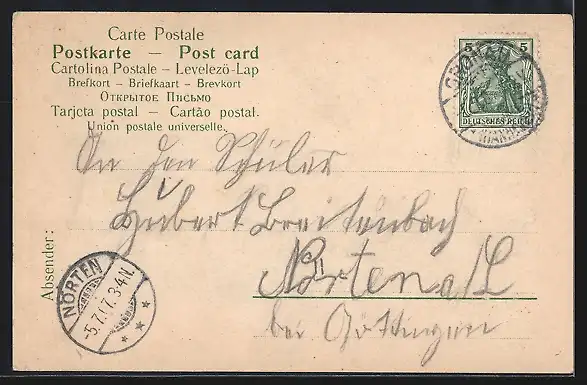 Carte Postale
Postkarte — Post card
Cartolina Postale – Levelező-Lap
Brefkort – Briefkaart – Brevkort
Открытое Письмо
Tarjeta postal — Cartão postal.
Union postale universelle.
5 5
DEUTSCHES REICH
GRONAU
(HANN
An den Schüler
Hubert Breitenbach
Nörten a/L
bei Göttingen
Absender:
NÖRTEN
-5.7.07.3-4N.